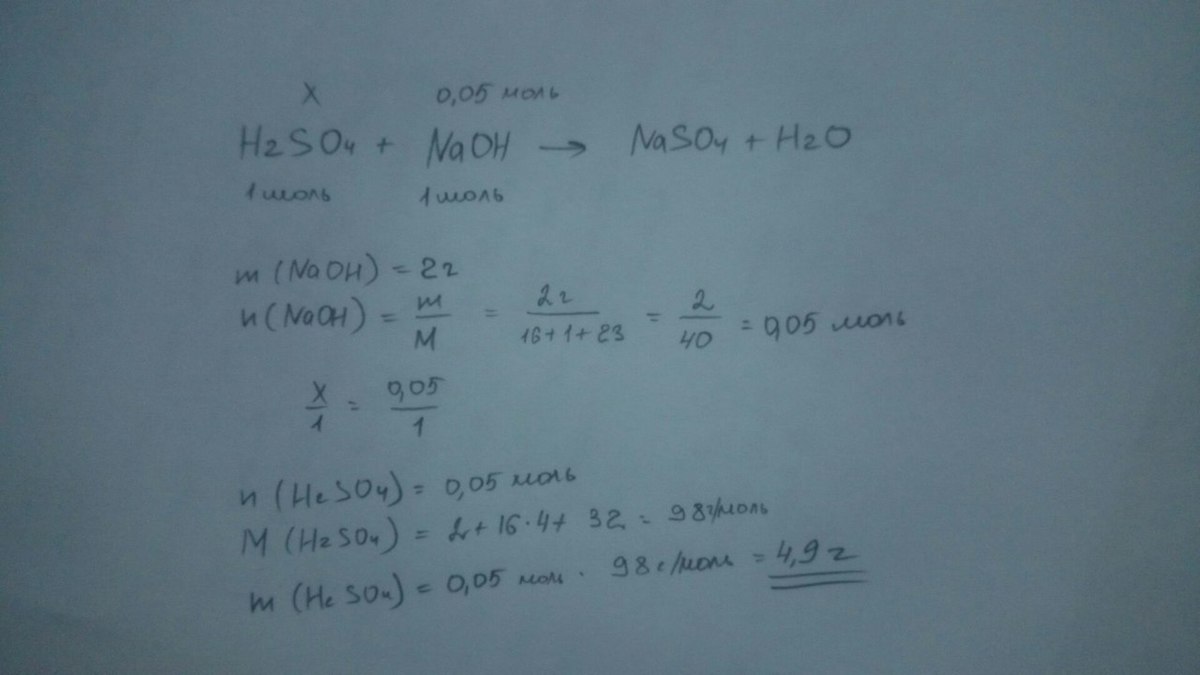 X 0,05 моль
H2SO4 + NaOH → NaSO4 + H2O
1 моль 1 моль
m (NaOH) = 2г
n (NaOH) = m/M = 2г/16+1+23 = 2/40 = 0,05 моль
X/1 = 0,05/1
n (H2SO4) = 0,05 моль
M (H2SO4) = 2+16·4+ 32 = 98г/моль
m (H2SO4) = 0,05 моль · 98г/моль = 4,9 г